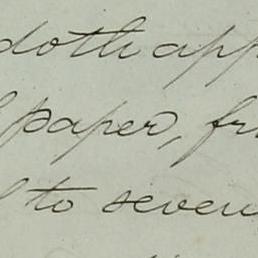 doth app
paper, fr
to seven